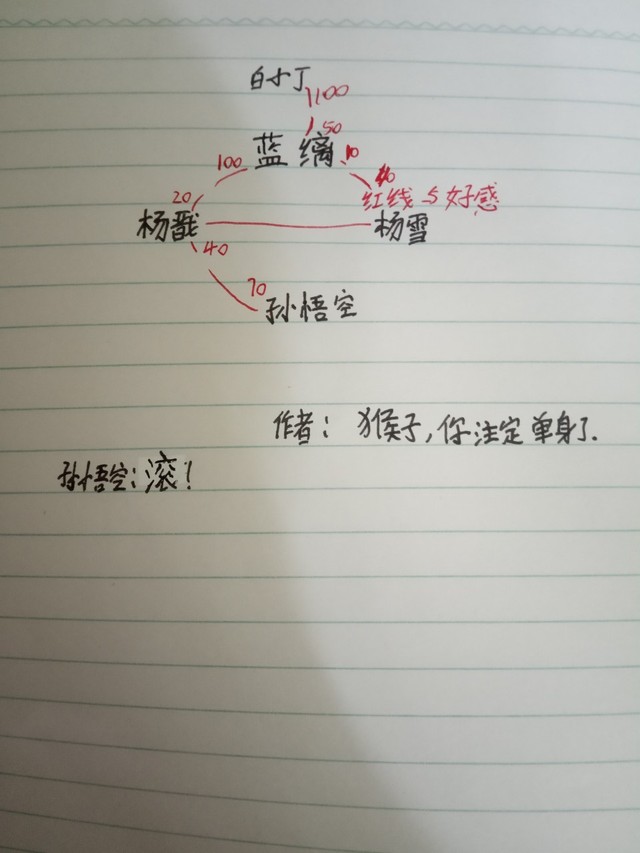 白小丁
100
50
蓝缡
100
10
20
红线与好感
杨戬
杨雪
40
70
孙悟空
作者：猴子，你注定单身了.
孙悟空：滚！